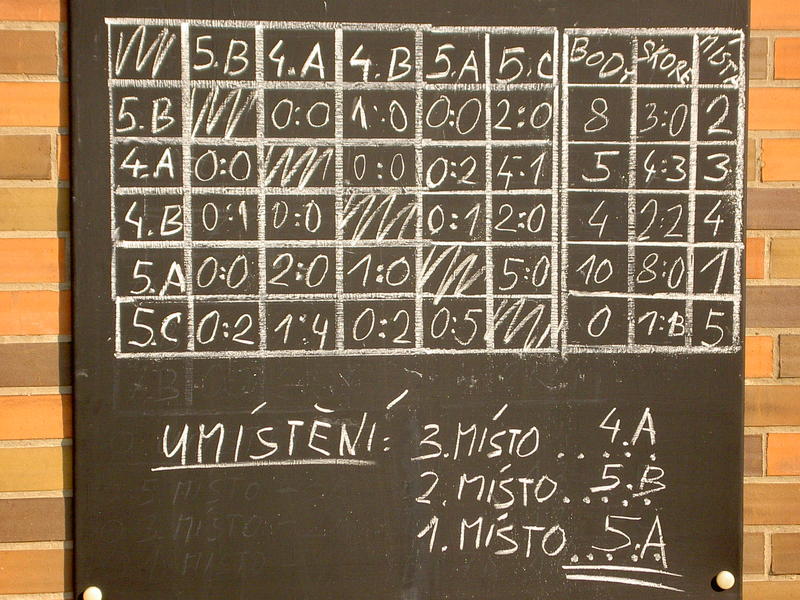 5.B 4.A 4.B 5.A 5.C BODY SKÓRE MÍSTO
5.B 0:0 1:0 0:0 2:0 8 3:0 2
4.A 0:0 0:0 0:2 4:1 5 4:3 3
4.B 0:1 0:0 0:1 2:0 4 2:2 4
5.A 0:0 2:0 1:0 5:0 10 8:0 1
5.C 0:2 1:4 0:2 0:5 0 1:13 5
UMÍSTĚNÍ: 3.MÍSTO ..... 4.A
2. MÍSTO..... 5.B
1. MÍSTO..... 5.A